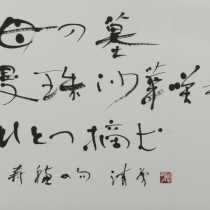 母の墓
曼珠沙華咲き
ひとつ摘む
の句